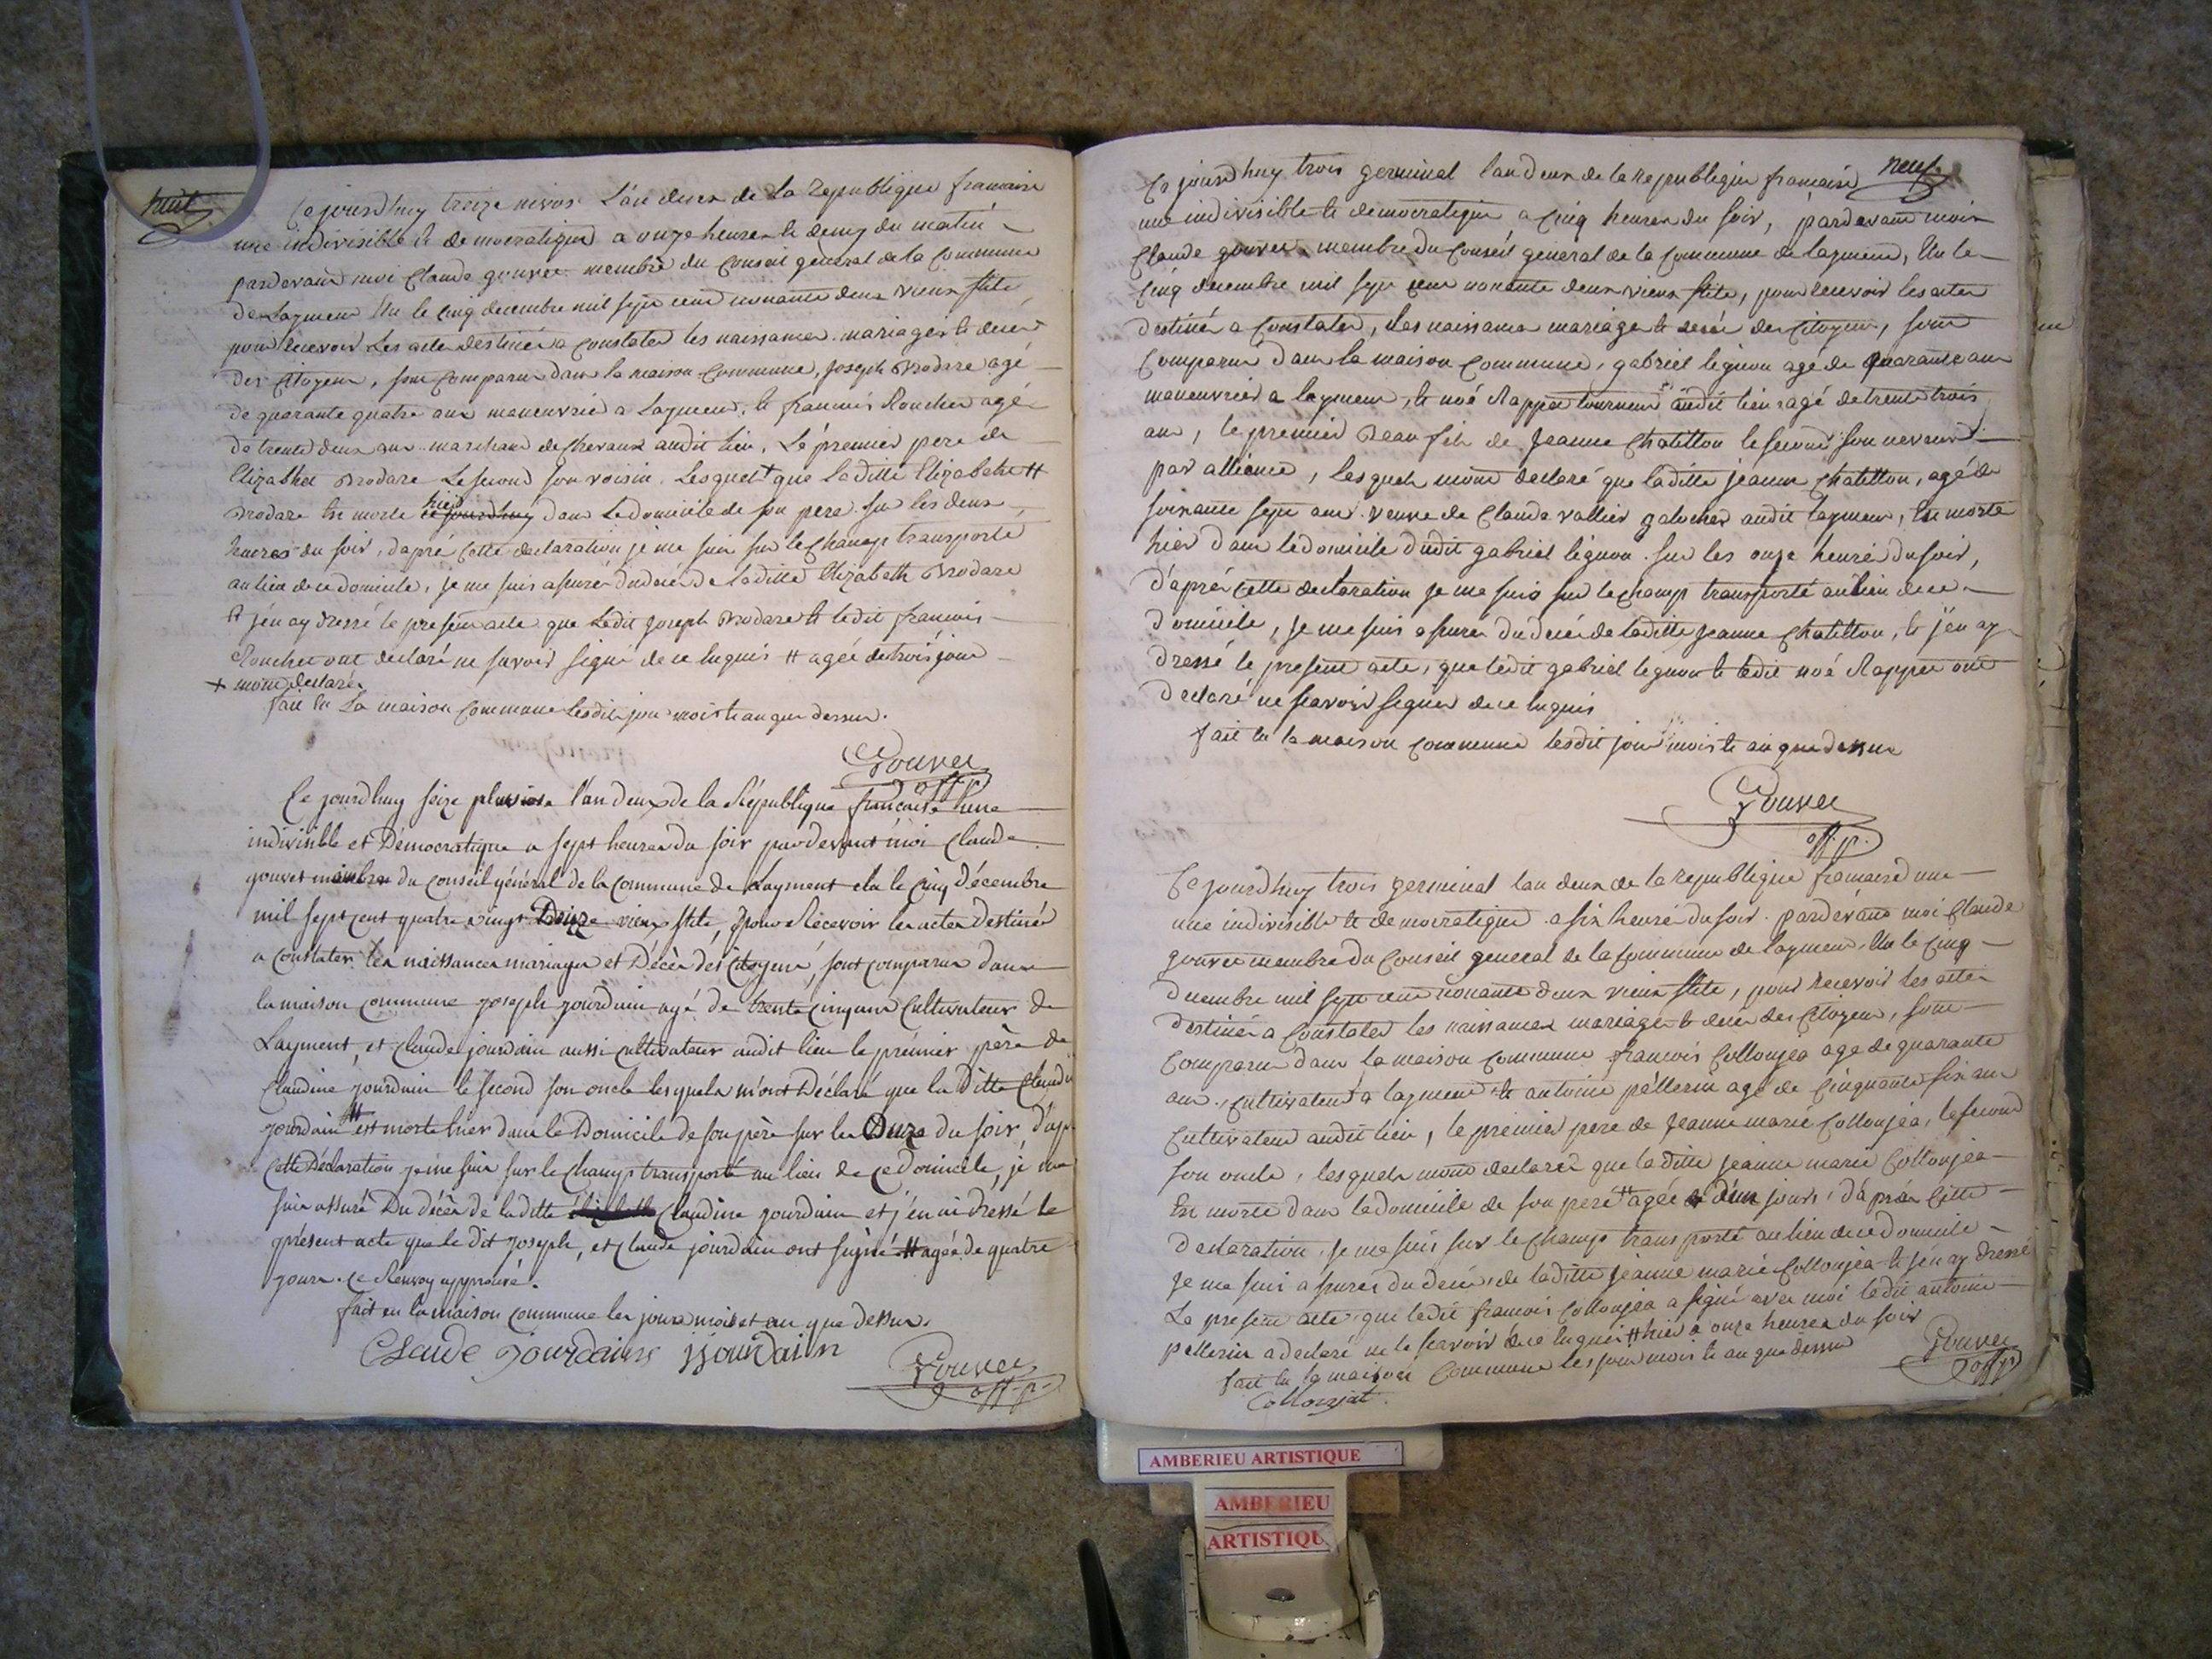 huit
Ce jourdhuy treize nivos L'an deux de la Republique francaise
une indivisible et democratique a onze heures et demy du matin
pardevant moi Claude gouvet membre du Conseil general de la Commune
de Layment Elu le Cinq decembre mil sept cent nonante deux vieux stile
pour Recevoir Les actes destinés a Constater les naissances mariages et deces
des Citoyens, sont Comparus dans la maison Commune, Joseph Brodare agé
de quarante quatre ans maneuvrie a Layment, et francois Rouches agé
de trente deux ans marchand de Chevaux audit lieu, Le premier pere de
Elizabhet Brodare Le second son voisin, Lesquels + que Laditte Elizabeth #
Brodare Est morte hier ce jourdhuy dans Le domicile de son pere sur les deux
heures du soir, dapré Cette declaration je me suis sur le Champ transporté
au lieu de ce domicile, je me suis assuré du decé de laditte Elizabeth Brodare
et j'en ay dressé le present acte que Ledit Joseph Brodare et ledit francois
Rouches ont declaré ne savoir signé de ce Enquis # agée de trois jour
+ mont declaré
fait En La maison Commune lesdits jour mois et an que dessus.
Gouvet
off. p.
Ce jourdhuy seize pluviose l'an deux de la République française une
indivisible et Démocratique a sept heures du soir pardevant moi Claude
gouvet membre du Conseil général de la Commune de Layment élu le Cinq Décembre
mil sept cent quatre vingt Douze vieux stile, pour Recevoir les actes Destinés
a Constater les naissances mariages et Décès des Citoyens, sont comparus dans
la maison commune joseph jourdain agé de trente cinq ans Cultivateur de
Layment, et Claude jourdain aussi cultivateur audit lieu le prémier père de
Claudine jourdain le second son oncle lesquels m'ont Déclaré que la Ditte Claudi
jourdain # est morte hier dans le Domicile de son père sur les Onze du soir, d'apr
cette Déclaration je me suis sur le Champ transporté au lieu de ce Domicile, je me
suis assuré Du décès de laditte Claudine jourdain et j'en ai dressé le
présent acte que le dit joseph, et Claude jourdain ont signé # agée de quatre
jours. Ce Renvoy approuvé.
fait en la maison commune les jours mois et an que dessus.
Claude Jourdains jjourdain
Gouvet
off. p.
neuf
Ce jourdhuy trois germinal l'an deux de la Republique francaise
une indivisible et democratique a Cinq heures du soir, pardevant moi
Claude gouvet membre du Conseil general de la Commune de Layment, Elu le
Cinq decembre mil sept cent nonante deux vieux stile, pour Recevoir les actes
destinés a Constater, les naissances mariages et decés des Citoyens, sont
Comparus dans la maison Commune, gabriel lignon agé de quarante ans
maneuvries a layment, et noé Rappet tourneur audit lieu agé de trente trois
ans, le premier Beau fils de Jeanne Chatillon le second son neveux
par alliance, lesquels mont declaré que laditte Jeanne Chatillon, agé de
soixante sept ans veuve de Claude vallier galocher audit Layment, Est morte
hier dans le domicile dudit gabriel lignon sur les onze heures du soir,
d'aprés Cette declaration je me suis sur le champ transporté au lieu de ce
domicile, je me suis assuré du decés de laditte Jeanne Chatillon, et j'en ay
dressé le present acte, que ledit gabriel lignon et ledit noé Rappet ont
declaré ne scavoir signer de ce Enquis
fait En la maison Commune lesdit jour mois et an que dessus
Gouvet
off. p.
Ce jourdhuy trois germinal lan deux de la republique francaise une
une indivisible et democratique a six heures du soir pardevans moi Claude
gouvet membre du Conseil general de la Commune de layment, Elu le Cinq
decembre mil sept cent nonante deux vieux stile, pour Recevoir les actes
destinés a Constater les naissances mariages et decés des Citoyens, sont
Comparus dans la maison Commune francois Collonjea age de quarante
ans, Cultivateur a layment et antoine pellerin agé de Cinquante six ans
Cultivateur audit lieu, le premier pere de Jeanne marie Collonjea, le second
son oncle, lesquels mont declaré que laditte jeanne marie Collonjea
Est morte dans le domicile de son peré # agée de deux jours, d'aprés Cette
declaration, je me suis sur le champ transporté au lieu de ce domicile
Je me suis assurer du decés, de laditte Jeanne marie Collonjea et j'en ay dressé
Le present acte que ledit francois Collonjea a signé avec moi ledit antoine
pellerin a declaré ne le scavoir de ce Enquis # hier a onze heures du soir
fait En la maison Commune les jour mois et an que dessus
Gouvet
off. p.
Collonjat
AMBERIEU ARTISTIQUE
AMBERIEU
ARTISTIQU